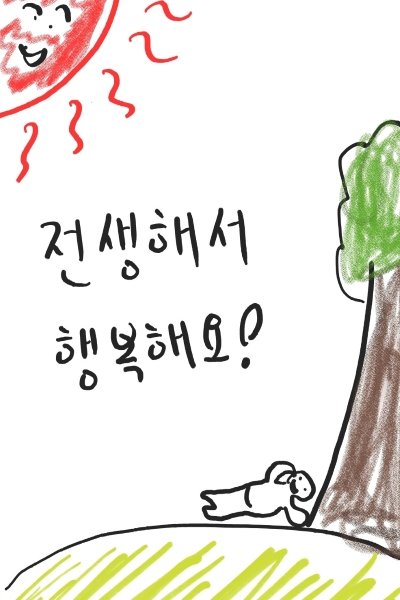 전생해서
행복해요?